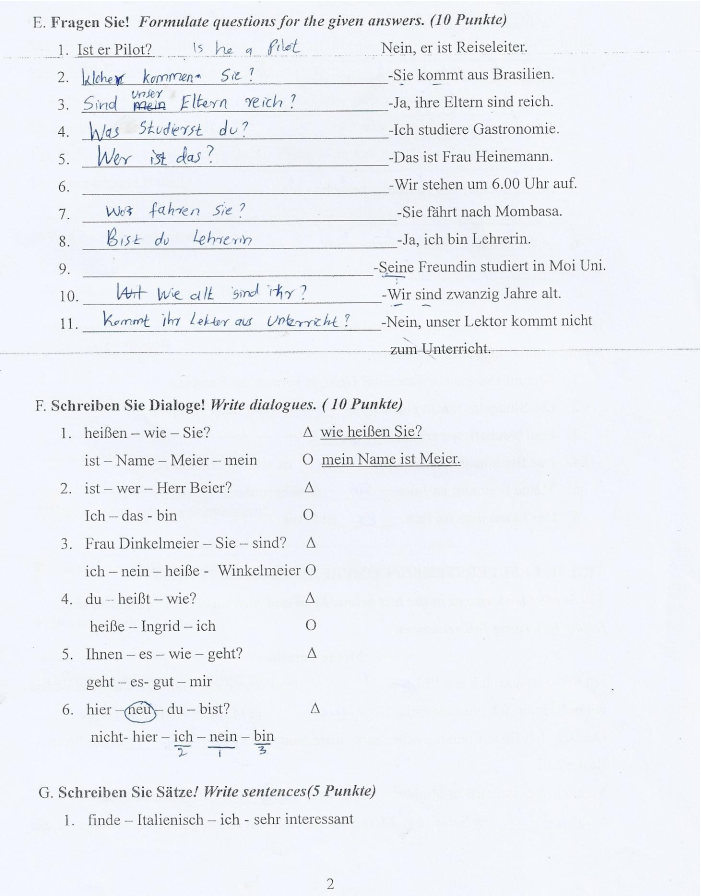 E. Fragen Sie! Formulate questions for the given answers. (10 Punkte)
1. Ist er Pilot? Is he a Pilot Nein, er ist Reiseleiter.
2. kommen Sie? -Sie kommt aus Brasilien.
unser
3. Sind mein Eltern reich? -Ja, ihre Eltern sind reich.
4. Was Studierst du? -Ich studiere Gastronomie.
5. Wer ist das? -Das ist Frau Heinemann.
6. -Wir stehen um 6.00 Uhr auf.
7. fahren Sie? -Sie fährt nach Mombasa.
8. Bist du Lehrerin -Ja, ich bin Lehrerin.
9. -Seine Freundin studiert in Moi Uni.
10. Wie alt sind ihr? -Wir sind zwanzig Jahre alt.
11. Kommt ihr Lektor aus Unterricht? -Nein, unser Lektor kommt nicht
zum Unterricht.
F. Schreiben Sie Dialoge! Write dialogues. ( 10 Punkte)
1. heißen – wie – Sie? Δ wie heißen Sie?
ist – Name – Meier – mein O mein Name ist Meier.
2. ist – wer – Herr Beier? Δ
Ich – das - bin O
3. Frau Dinkelmeier – Sie – sind? Δ
ich – nein – heiße - Winkelmeier O
4. du – heißt – wie? Δ
heiße – Ingrid – ich O
5. Ihnen – es – wie – geht? Δ
geht – es- gut – mir
6. hier – neu – du – bist? Δ
nicht- hier – ich – nein – bin
2 1 3
G. Schreiben Sie Sätze! Write sentences(5 Punkte)
1. finde – Italienisch – ich - sehr interessant
2